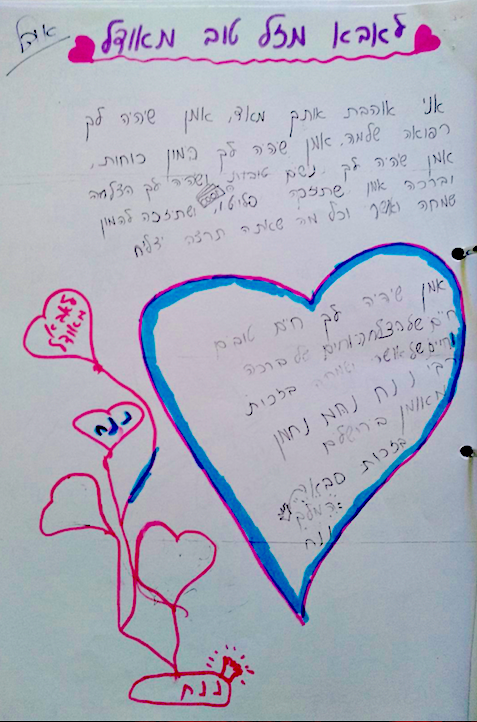 לאבא מזל טוב מאודל
אני אוהבת אותך מאוד, אמן שיהיה לך
רפואה שלמה, אמן שיהיה לך המון כוחות,
אמן שיהיה לך נשים טובות ושיהיה לך הצלחה
וברכה אמן שתזכה ושתזכה להמון
שמחה ואושר וכל מה שאתה תרצה יצליח
אמן שיהיה לך חיים טובים
חיים של הצלחה וחיים של ברכה
וחיים של אושר בזכות
רבי נ נח נחמ נחמן
מאומן בירושלים
בזכות סבא
המלך
ננח
לאבא
מאודל
ננח
ננח